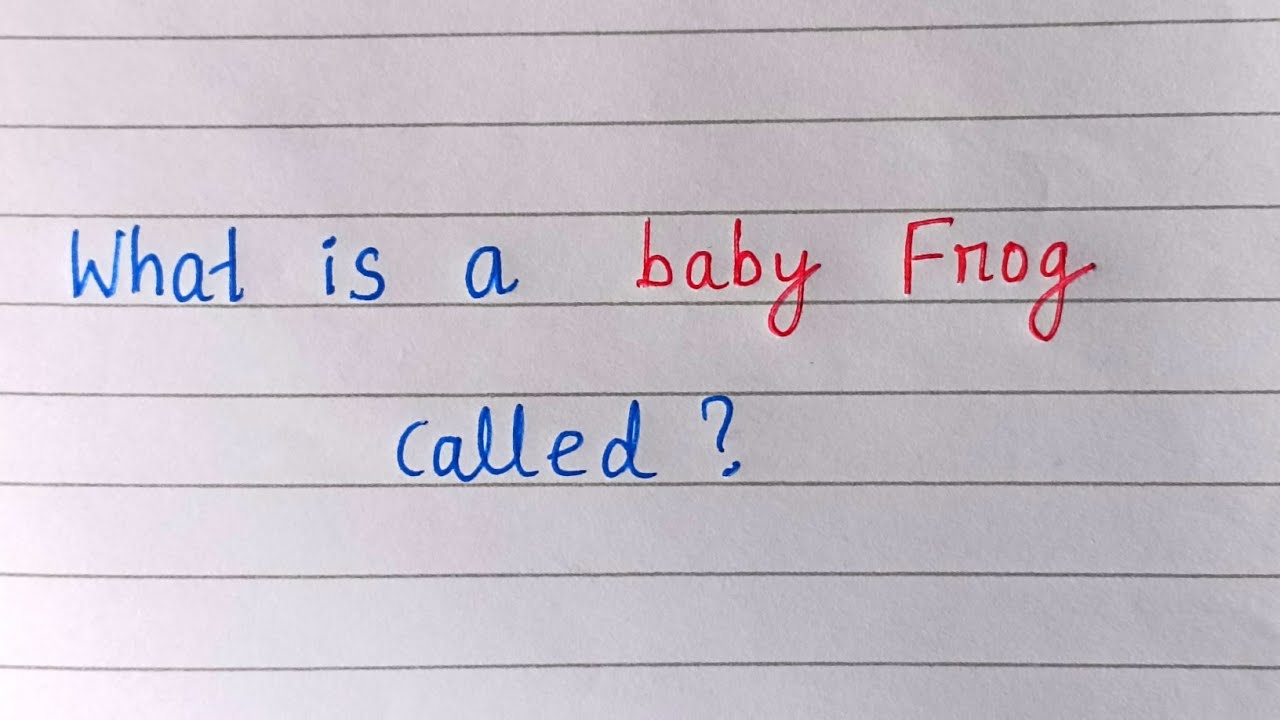 What is a baby Frog
called ?